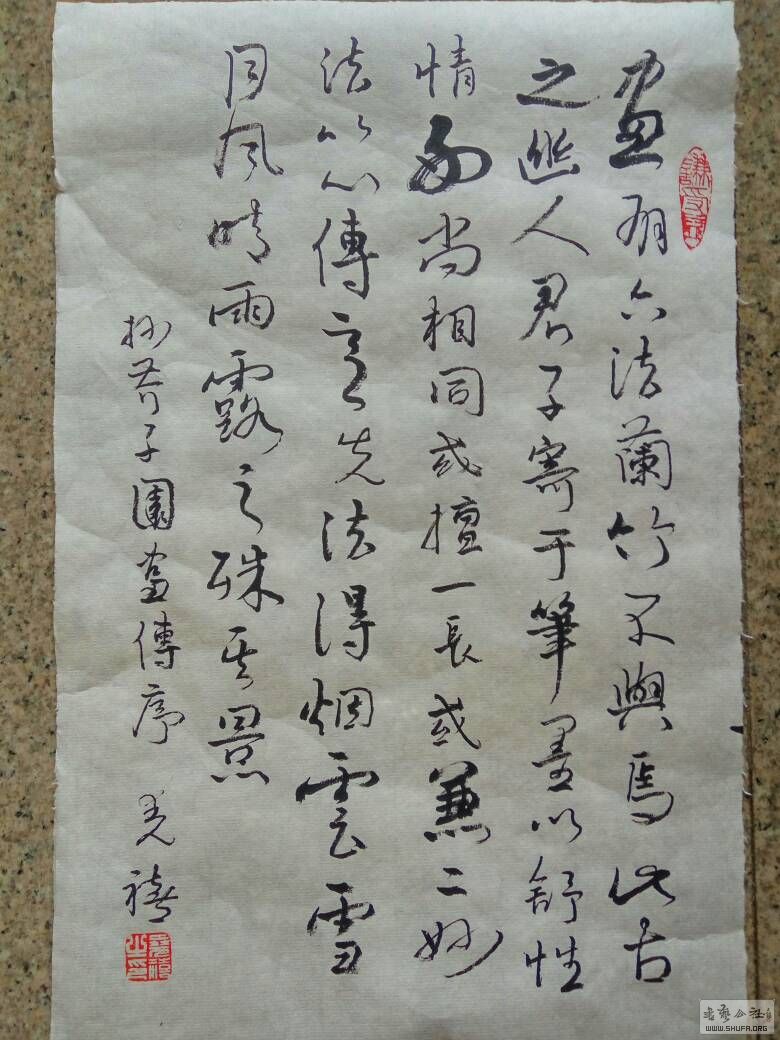 畫有六法蘭竹不與焉此古
之幽人君子寄于筆墨以舒性
情而尚相同或擅一長或兼二妙
法以心傳意先法得烟雲雪
月風晴雨露之殊其景
抄芥子園畫傳序
禧
WWW.SHUFA.ORG